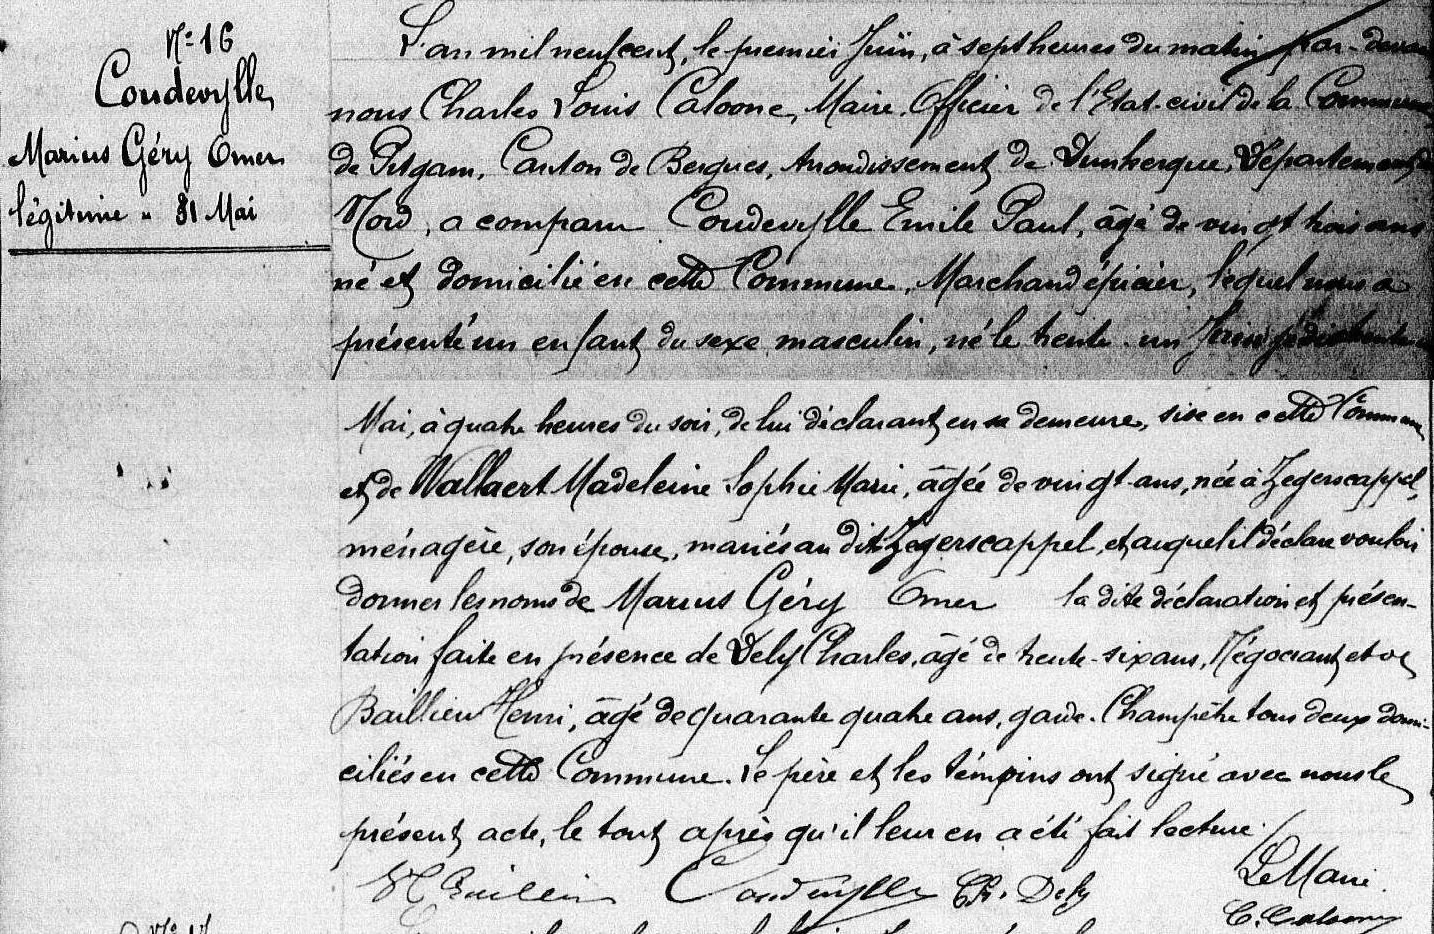 N° 16
Coudevylle
Marius Géry Omer
légitime " 31 Mai
L'an mil neuf cent, le premier Juin, à sept heures du matin par-devant
nous Charles Louis Caloone, Maire, Officier de l'Etat-civil de la Commune
de Pitgam, Canton de Bergues, Arrondissement de Dunkerque, Département du
Nord, a comparu Coudevylle Emile Paul, âgé de vingt trois ans
né et domicilié en cette Commune, Marchand épicier, lequel nous a
présenté un enfant du sexe masculin, né le trente-un
Mai, à quatre heures du soir, de lui déclarant en sa demeure, sise en cette Commune
et de Wallaert Madeleine Sophie Marie, âgée de vingt-ans, née à Zegerscappel,
ménagère, son épouse, mariés au dit Zegerscappel, et auquel il déclare vouloir
donner les noms de Marius Géry Omer la dite déclaration et présen-
tation faite en présence de Dely Charles, âgé de trente-six ans, Négociant et de
Baillieu Henri, âgé de quarante quatre ans, garde-Champêtre tous deux domi-
ciliés en cette Commune. Le père et les témoins ont signé avec nous le
présent acte, le tout après qu'il leur en a été fait lecture.
H Baillieu Coudevylle Ch. Dely Le Maire
C. Caloone
N° 17